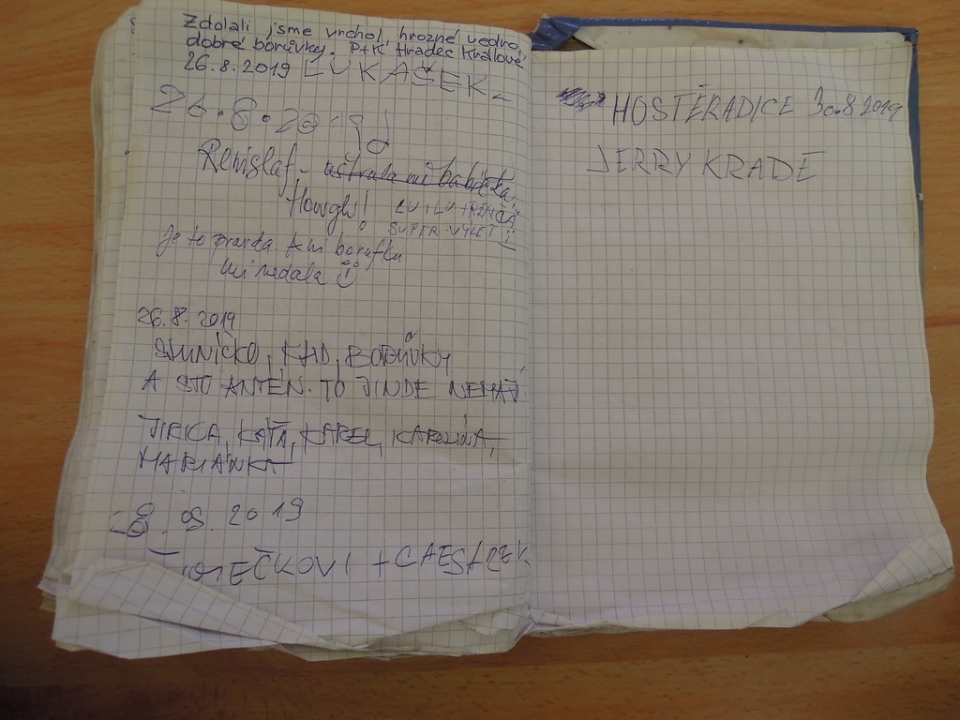 Zdolali jsme vrchol, hrozné vedro,
dobré borůvky. P+K Hradec Králové
26.8.2019 LUKAŠEK
26.8.2019
Renislaf - ustrala mi babička,
Howgh!
SUPER VÝLET
Je to pravda, ani borufku
mi nedala
26.8.2019
SLUNÍČKO, KLID, BORŮVKY
A STO ANTÉN. TO JINDE NEMAJ
JIRKA, KÁŤA, KAREL, KAROLÍNA,
MARIÁNKA
28.08.2019
+ CAESAREK
HOSTĚRADICE 30.8 2019
JERRY KRADE